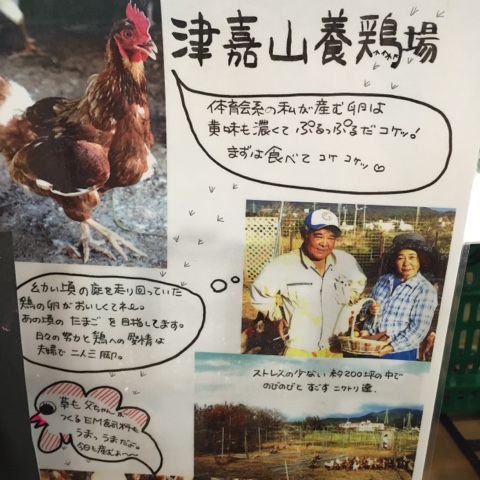 津嘉山養鶏場
体育会系の私が産む卵は
黄味も濃くてぷるっぷるだコケッ!
まずは食べてコケコケッ♡
小さい頃の庭を走り回っていた
鶏の卵がおいしくてネ。
あの頃のたまごを目指してます。
日々の努力と鶏への愛情は
夫婦で二人三脚。
ストレスの少ない約200坪の中で
のびのびとすごすニワトリ達.
草も父ちゃんが
つくるEM飼料も
うまっうまだよ。
今日も産むよ〜〜